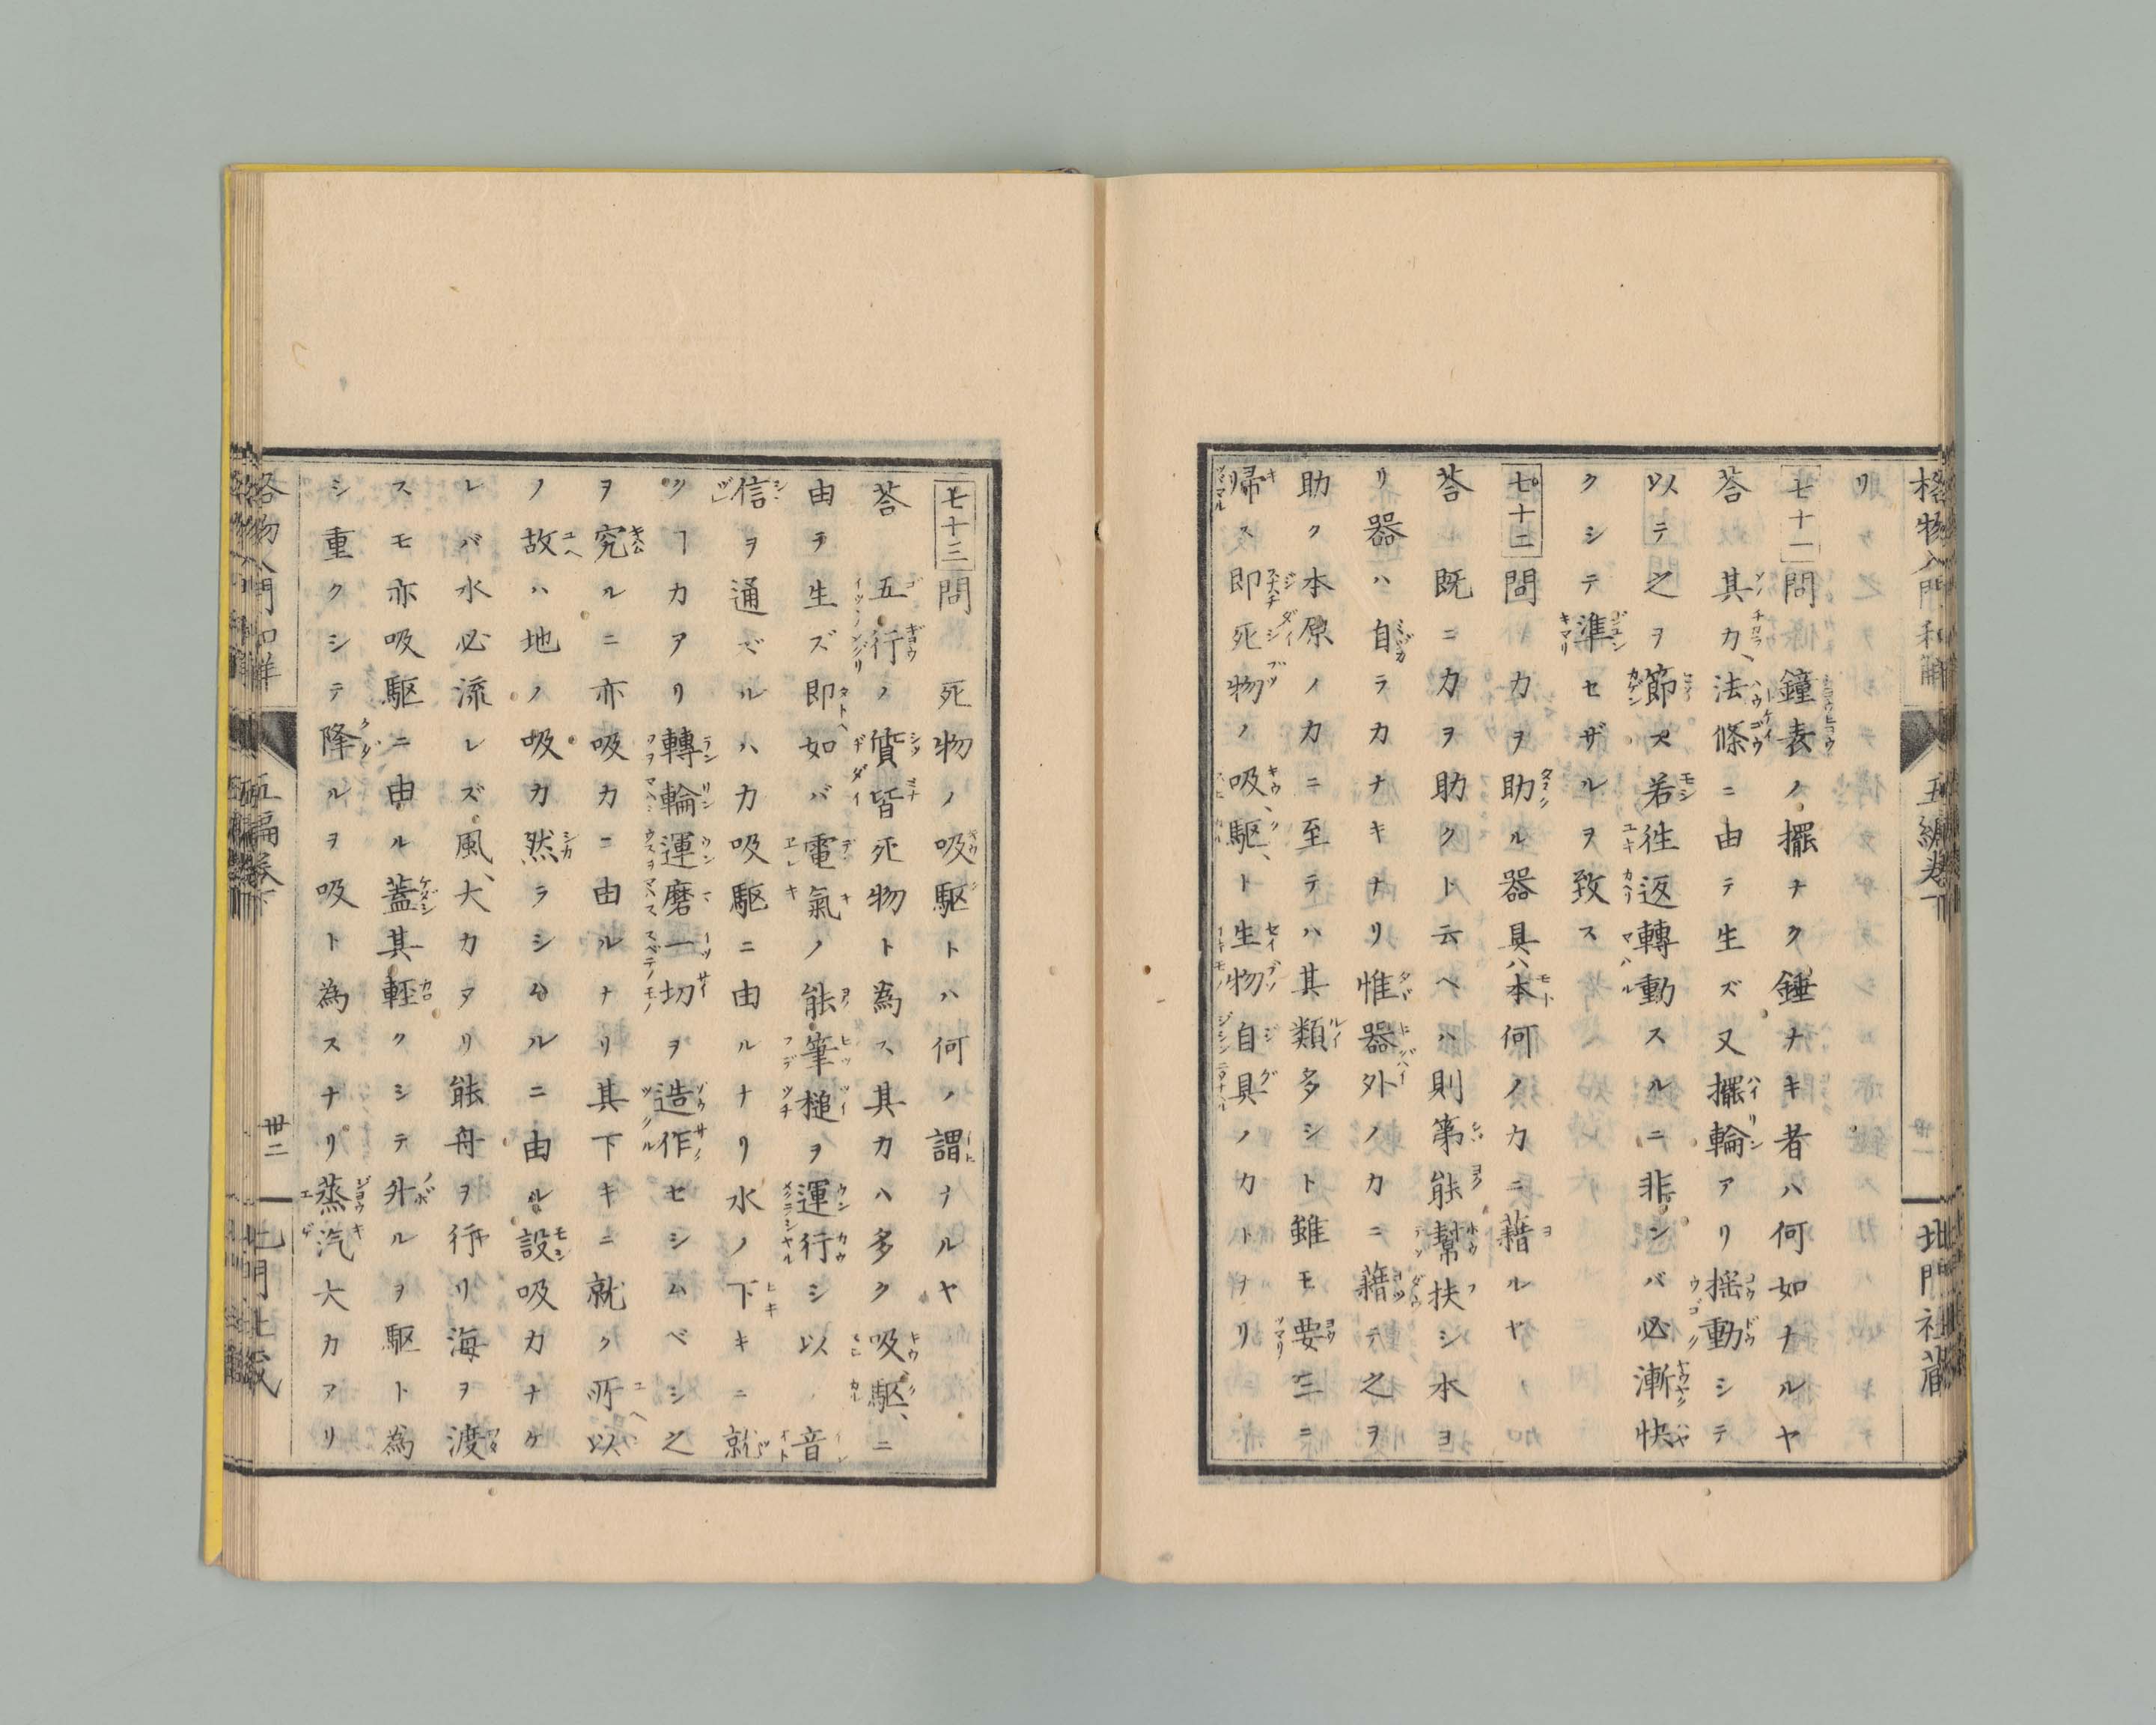 格物入門和解 五編巻下 卅一 北門社藏
リ
七十一問鐘表ノ擺ナク錘ナキ者ハ何如ナルヤ
荅其力法條ニ由テ生ズ又擺輪アリ揺動シテ
以テ之ヲ節ス若徃返轉動スルニ非ンバ必漸快
クシテ準セザルヲ致ス
七十二問力ヲ助ル器具ハ本何ノ力ニ藉ルヤ
荅既ニ力ヲ助クト云ヘハ則第能幇扶シ水ヨ
リ器ハ自ラカナキナリ惟器外ノ力ニ藉テ之ヲ
助ク本原ノ力ニ至テハ其類多シト雖モ要三ニ
帰ス即死物ノ吸駆ト生物自具ノ力トヲリ
七十三問死物ノ吸駆トハ何ノ謂ナルヤ
荅五行ノ質皆死物ト為ス其力ハ多ク吸駆ニ
由テ生ズ即如バ電氣ノ能筆槌ヲ運行シ以音
信ヲ通ズルハ力吸駆ニ由ルナリ水ノ下キニ就
クヿカアリ轉輪運磨一切ヲ造作セシムベシ之
ヲ究ルニ亦吸力ニ由ルナリ其下キニ就ク所以
ノ故ハ地ノ吸力然ラシムルニ由ル設吸力ナケ
レバ水必流レズ風大力アリ能舟ヲ行リ海ヲ渡
スモ亦吸駆ニ由ル蓋其軽クシテ升ルヲ駆ト為
シ重クシテ降ルヲ吸ト為スナリ蒸汽大力アリ
格物入門和解 五編巻下 卅二 北門社藏